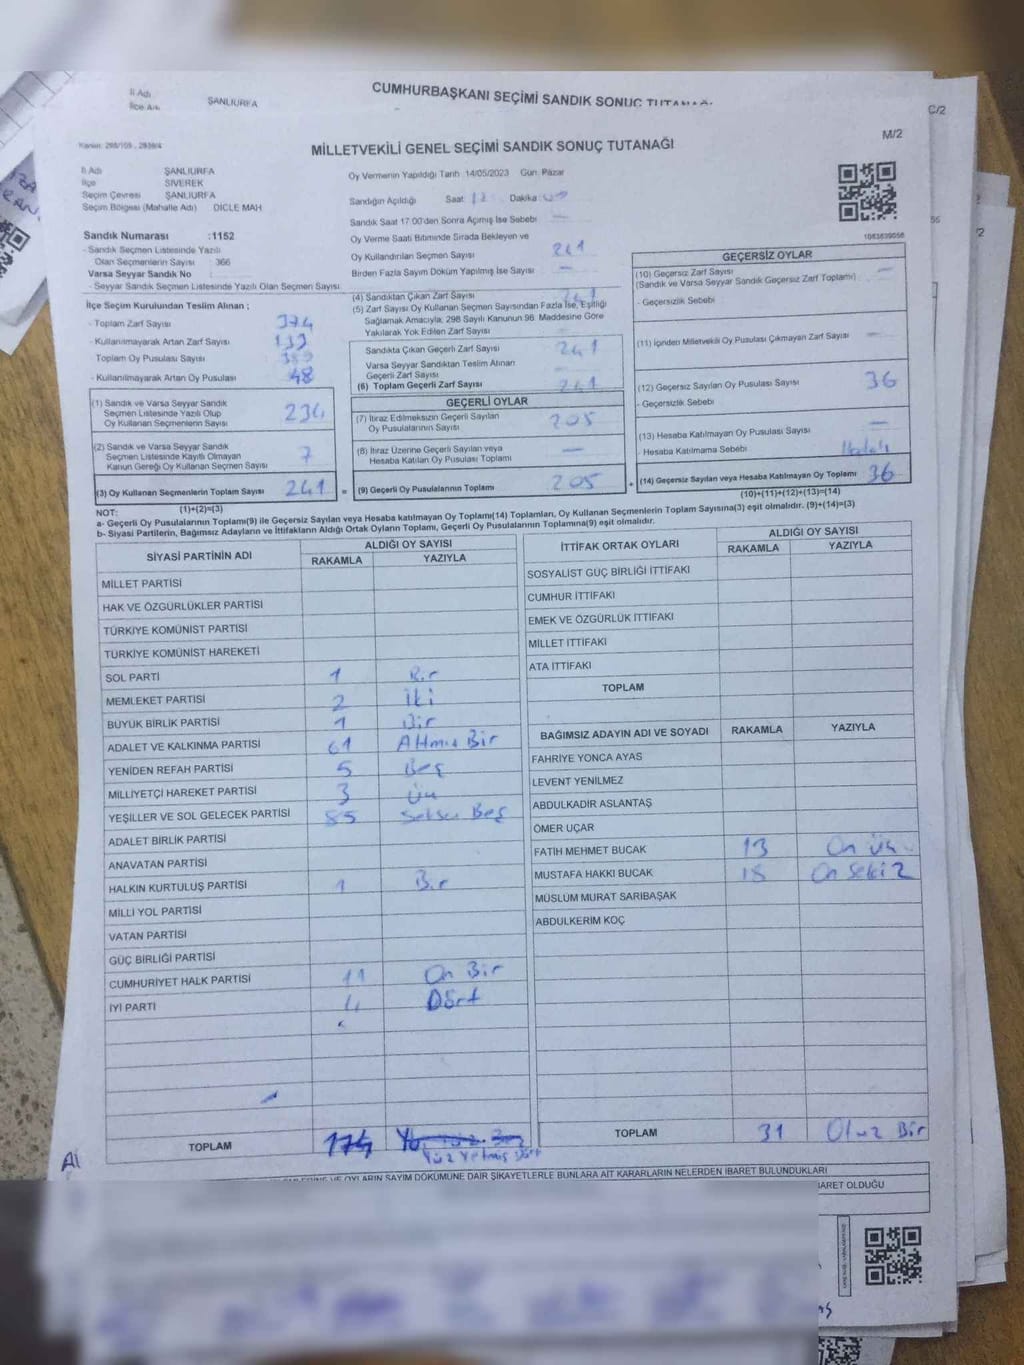 İl Adı
İlçe Adı
ŞANLIURFA
CUMHURBAŞKANI SEÇİMİ SANDIK SONUÇ TUTANAĞI
C/2
M/2
Kanun: 298/105 , 2839/4
MİLLETVEKİLİ GENEL SEÇİMİ SANDIK SONUÇ TUTANAĞI
İl Adı ŞANLIURFA
İlçe SİVEREK
Seçim Çevresi ŞANLIURFA
Seçim Bölgesi (Mahalle Adı) DİCLE MAH
Sandık Numarası :1152
- Sandık Seçmen Listesinde Yazılı
Olan Seçmenlerin Sayısı : 366
Varsa Seyyar Sandık No
- Seyyar Sandık Seçmen Listesinde Yazılı Olan Seçmen Sayısı
İlçe Seçim Kurulundan Teslim Alınan ;
- Toplam Zarf Sayısı 374
- Kullanılmayarak Artan Zarf Sayısı 133
Toplam Oy Pusulası Sayısı
- Kullanılmayarak Artan Oy Pusulası 48
(1) Sandık ve Varsa Seyyar Sandık
Seçmen Listesinde Yazılı Olup
Oy Kullanan Seçmenlerin Sayısı 234
(2) Sandık ve Varsa Seyyar Sandık
Seçmen Listesinde Kayıtlı Olmayan
Kanun Gereği Oy Kullanan Seçmen Sayısı 7
(3) Oy Kullanan Seçmenlerin Toplam Sayısı 241 =
(1)+(2)=(3)
Oy Vermenin Yapıldığı Tarih 14/05/2023 Gün: Pazar
Sandığın Açıldığı Saat 17 Dakika
Sandık Saat 17:00'den Sonra Açmış İse Sebebi —
Oy Verme Saati Bitiminde Sırada Bekleyen ve
Oy Kullandırılan Seçmen Sayısı 241
Birden Fazla Sayım Döküm Yapılmış İse Sayısı —
(4) Sandıktan Çıkan Zarf Sayısı 241
(5) Zarf Sayısı Oy Kullanan Seçmen Sayısından Fazla İse, Eşitliği
Sağlamak Amacıyla, 298 Sayılı Kanunun 98. Maddesine Göre
Yakılarak Yok Edilen Zarf Sayısı
Sandıkta Çıkan Geçerli Zarf Sayısı 241
Varsa Seyyar Sandıktan Teslim Alınan
Geçerli Zarf Sayısı —
(6) Toplam Geçerli Zarf Sayısı 241
GEÇERLİ OYLAR
(7) İtiraz Edilmeksizin Geçerli Sayılan
Oy Pusulalarının Sayısı 205
(8) İtiraz Üzerine Geçerli Sayılan veya
Hesaba Katılan Oy Pusulası Toplamı —
(9) Geçerli Oy Pusulalarının Toplamı 205 +
1083639056
GEÇERSİZ OYLAR
(10) Geçersiz Zarf Sayısı —
(Sandık ve Varsa Seyyar Sandık Geçersiz Zarf Toplamı)
- Geçersizlik Sebebi
(11) İçinden Milletvekili Oy Pusulası Çıkmayan Zarf Sayısı —
(12) Geçersiz Sayılan Oy Pusulası Sayısı 36
- Geçersizlik Sebebi
(13) Hesaba Katılmayan Oy Pusulası Sayısı —
- Hesaba Katılmama Sebebi Hatalı
(14) Geçersiz Sayılan veya Hesaba Katılmayan Oy Toplamı 36
(10)+(11)+(12)+(13)=(14)
NOT:
a- Geçerli Oy Pusulalarının Toplamı(9) ile Geçersiz Sayılan veya Hesaba katılmayan Oy Toplamı(14) Toplamları, Oy Kullanan Seçmenlerin Toplam Sayısına(3) eşit olmalıdır. (9)+(14)=(3)
b- Siyasi Partilerin, Bağımsız Adayların ve İttifakların Aldığı Ortak Oyların Toplamı, Geçerli Oy Pusulalarının Toplamına(9) eşit olmalıdır.
SİYASİ PARTİNİN ADI ALDIĞI OY SAYISI
RAKAMLA YAZIYLA
MİLLET PARTİSİ
HAK VE ÖZGÜRLÜKLER PARTİSİ
TÜRKİYE KOMÜNİST PARTİSİ
TÜRKİYE KOMÜNİST HAREKETİ
SOL PARTİ 1 Bir
MEMLEKET PARTİSİ 2 İki
BÜYÜK BİRLİK PARTİSİ 1 Bir
ADALET VE KALKINMA PARTİSİ 61 Altmış Bir
YENİDEN REFAH PARTİSİ 5 Beş
MİLLİYETÇİ HAREKET PARTİSİ 3 Üç
YEŞİLLER VE SOL GELECEK PARTİSİ 85 Seksen Beş
ADALET BİRLİK PARTİSİ
ANAVATAN PARTİSİ
HALKIN KURTULUŞ PARTİSİ 1 Bir
MİLLİ YOL PARTİSİ
VATAN PARTİSİ
GÜÇ BİRLİĞİ PARTİSİ
CUMHURİYET HALK PARTİSİ 11 On Bir
İYİ PARTİ 4 Dört
TOPLAM 174
Yüz Yetmiş Dört
İTTİFAK ORTAK OYLARI ALDIĞI OY SAYISI
RAKAMLA YAZIYLA
SOSYALİST GÜÇ BİRLİĞİ İTTİFAKI
CUMHUR İTTİFAKI
EMEK VE ÖZGÜRLÜK İTTİFAKI
MİLLET İTTİFAKI
ATA İTTİFAKI
TOPLAM
BAĞIMSIZ ADAYIN ADI VE SOYADI RAKAMLA YAZIYLA
FAHRİYE YONCA AYAS
LEVENT YENİLMEZ
ABDULKADİR ASLANTAŞ
ÖMER UÇAR
FATİH MEHMET BUCAK 13 On Üç
MUSTAFA HAKKI BUCAK 18 On Sekiz
MÜSLÜM MURAT SARIBAŞAK
ABDULKERİM KOÇ
TOPLAM 31 Otuz Bir
VE OYLARIN SAYIM DÖKÜMÜNE DAİR ŞİKAYETLERLE BUNLARA AİT KARARLARIN NELERDEN İBARET BULUNDUKLARI
İBARET OLDUĞU